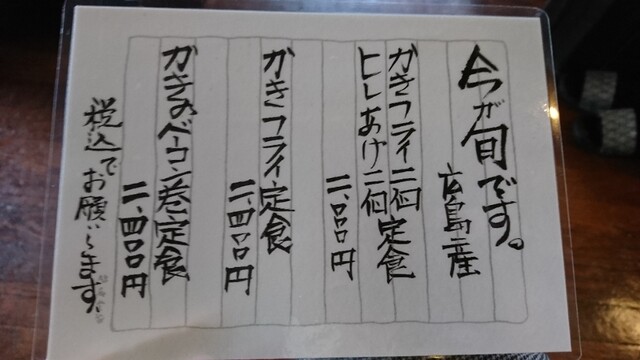 今が旬です。
広島産
かきフライ二個
ヒレあげ二個定食
二、〇〇〇円
かきフライ定食
二、四〇〇円
かきのベーコン巻定食
二、四〇〇円
税込でお願いします。